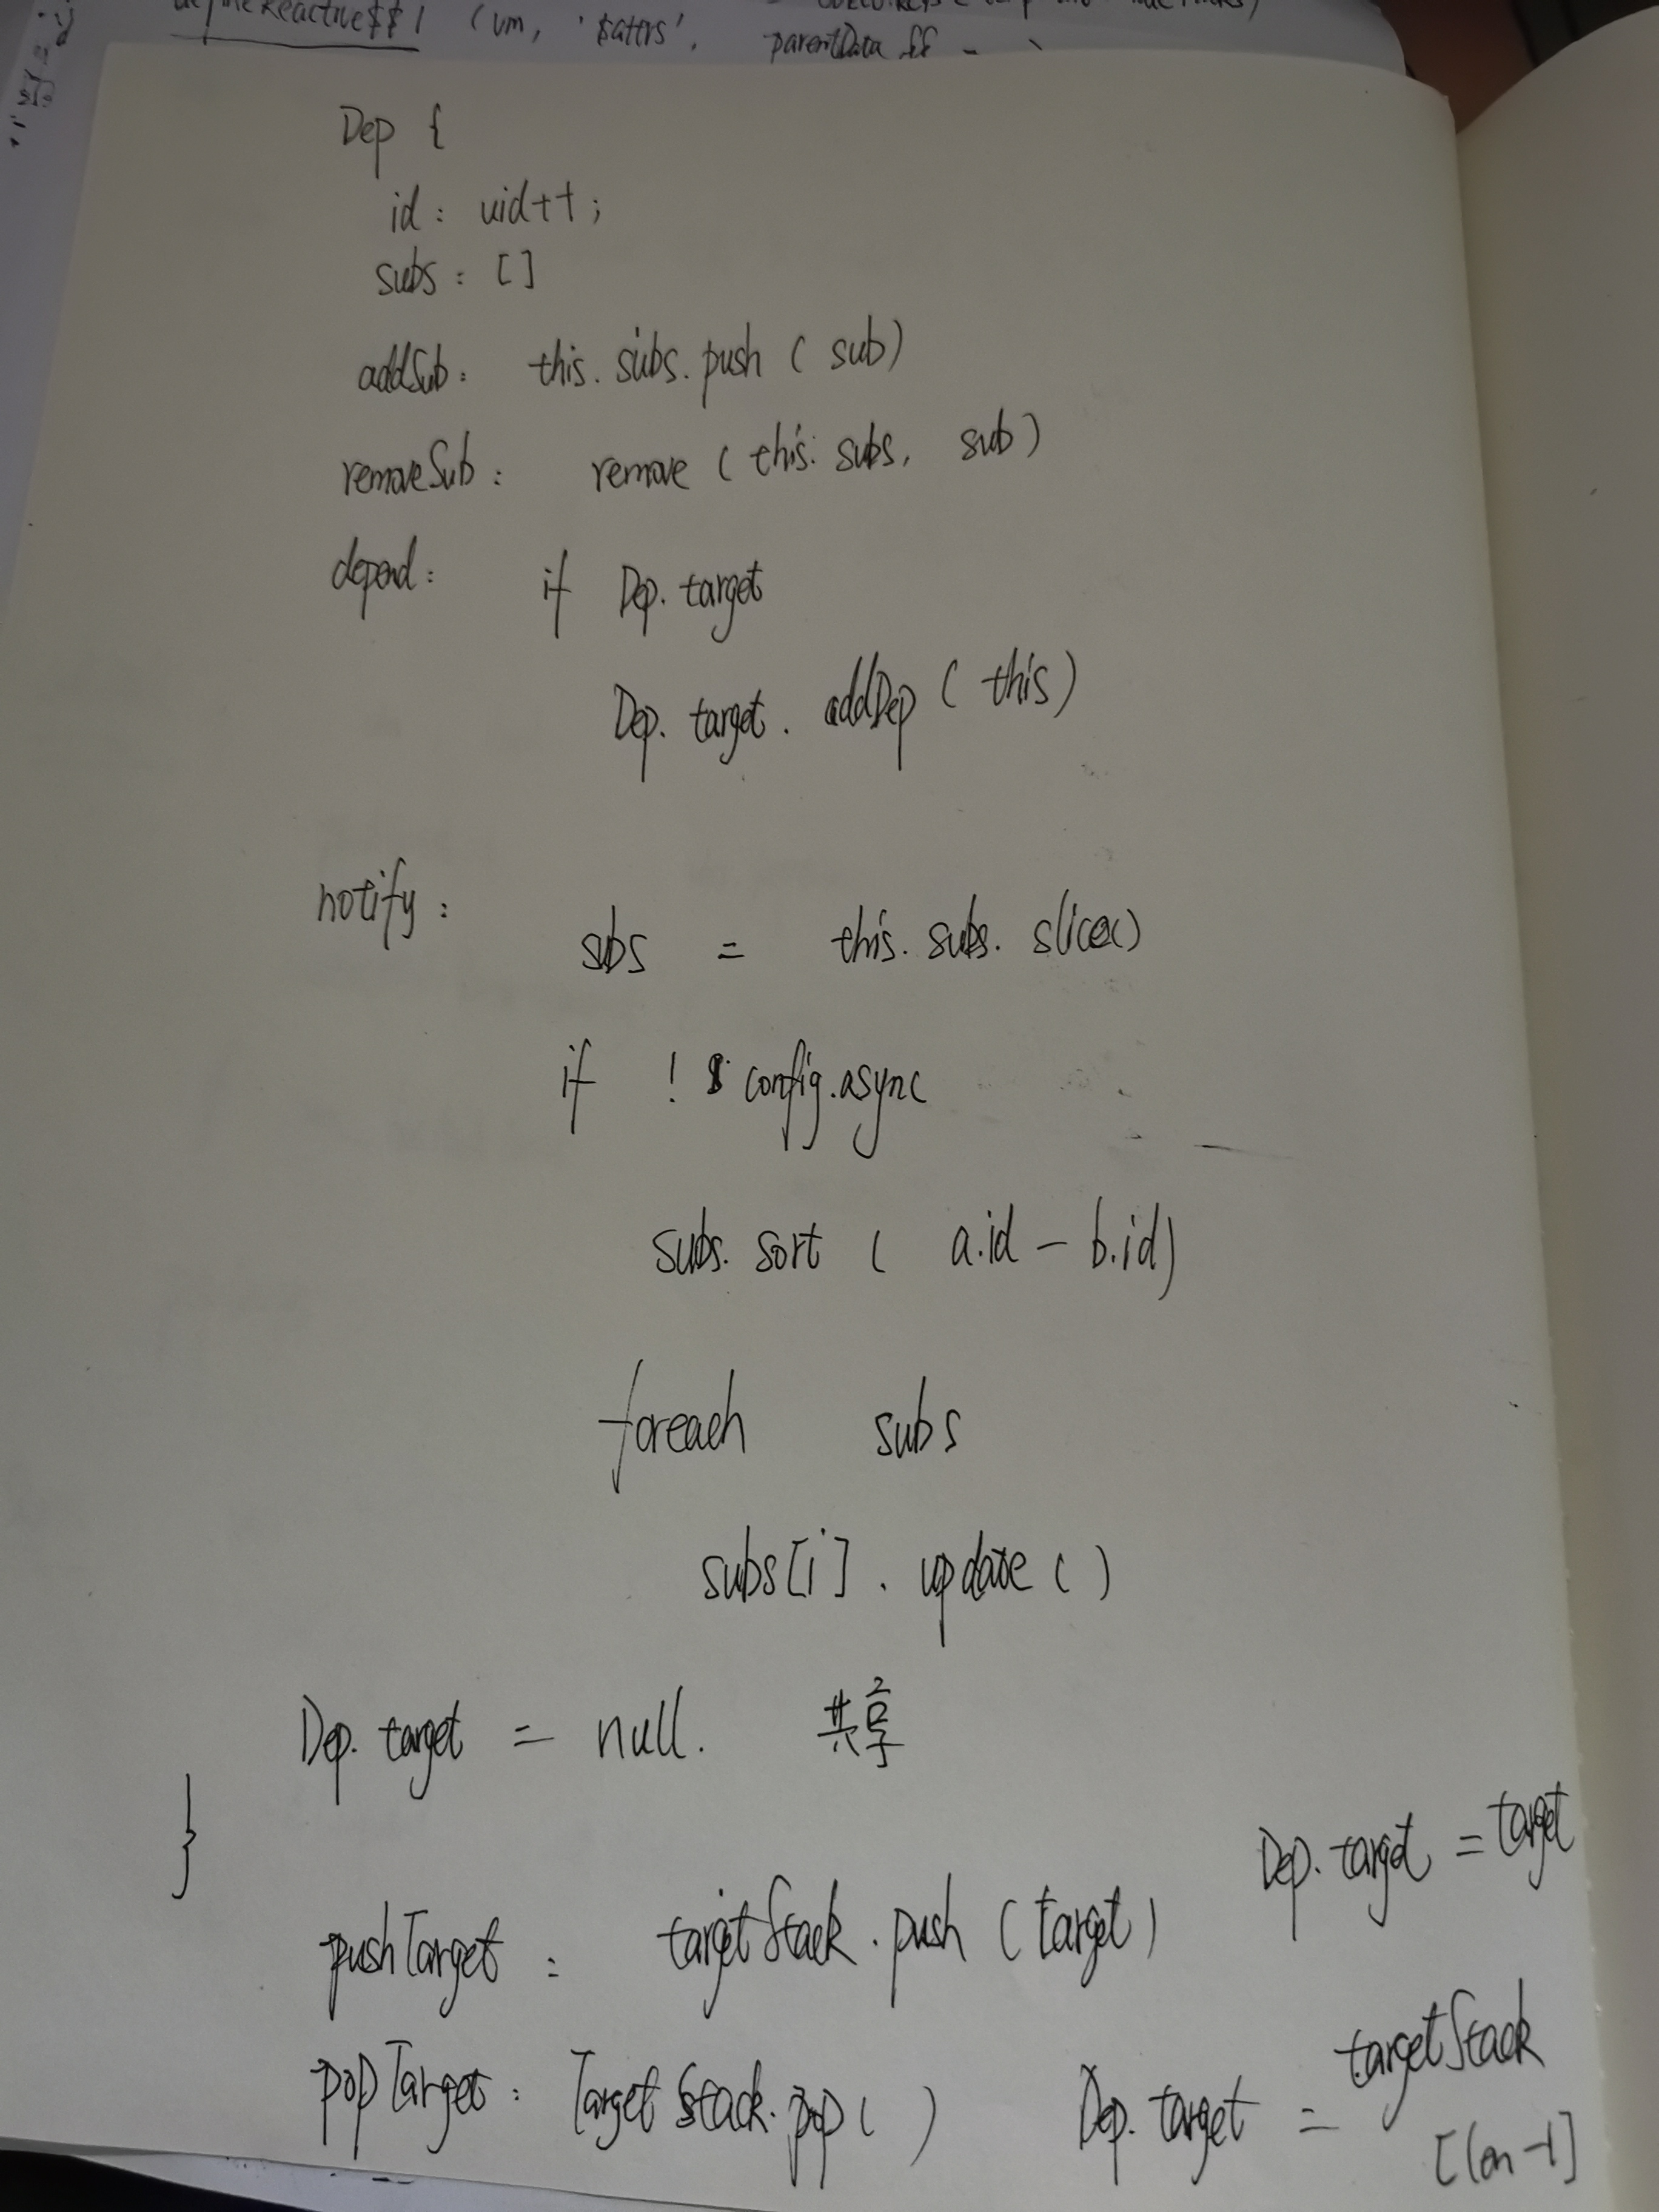 defineReactive$$1 (vm, '$attrs', parentData &&
Dep {
id: uid++;
subs: []
addSub: this.subs.push ( sub)
removeSub: remove (this.subs, sub)
depend: if Dep.target
Dep.target. addDep ( this)
notify:
subs = this.subs. slice()
if ! config.async
subs. sort ( a.id - b.id)
foreach subs
subs[i]. update ( )
Dep.target = null. 共享
}
Dep.target = target
pushTarget: targetStack.push (target)
popTarget: TargetStack.pop ( ) Dep.target = targetStack
[len-1]